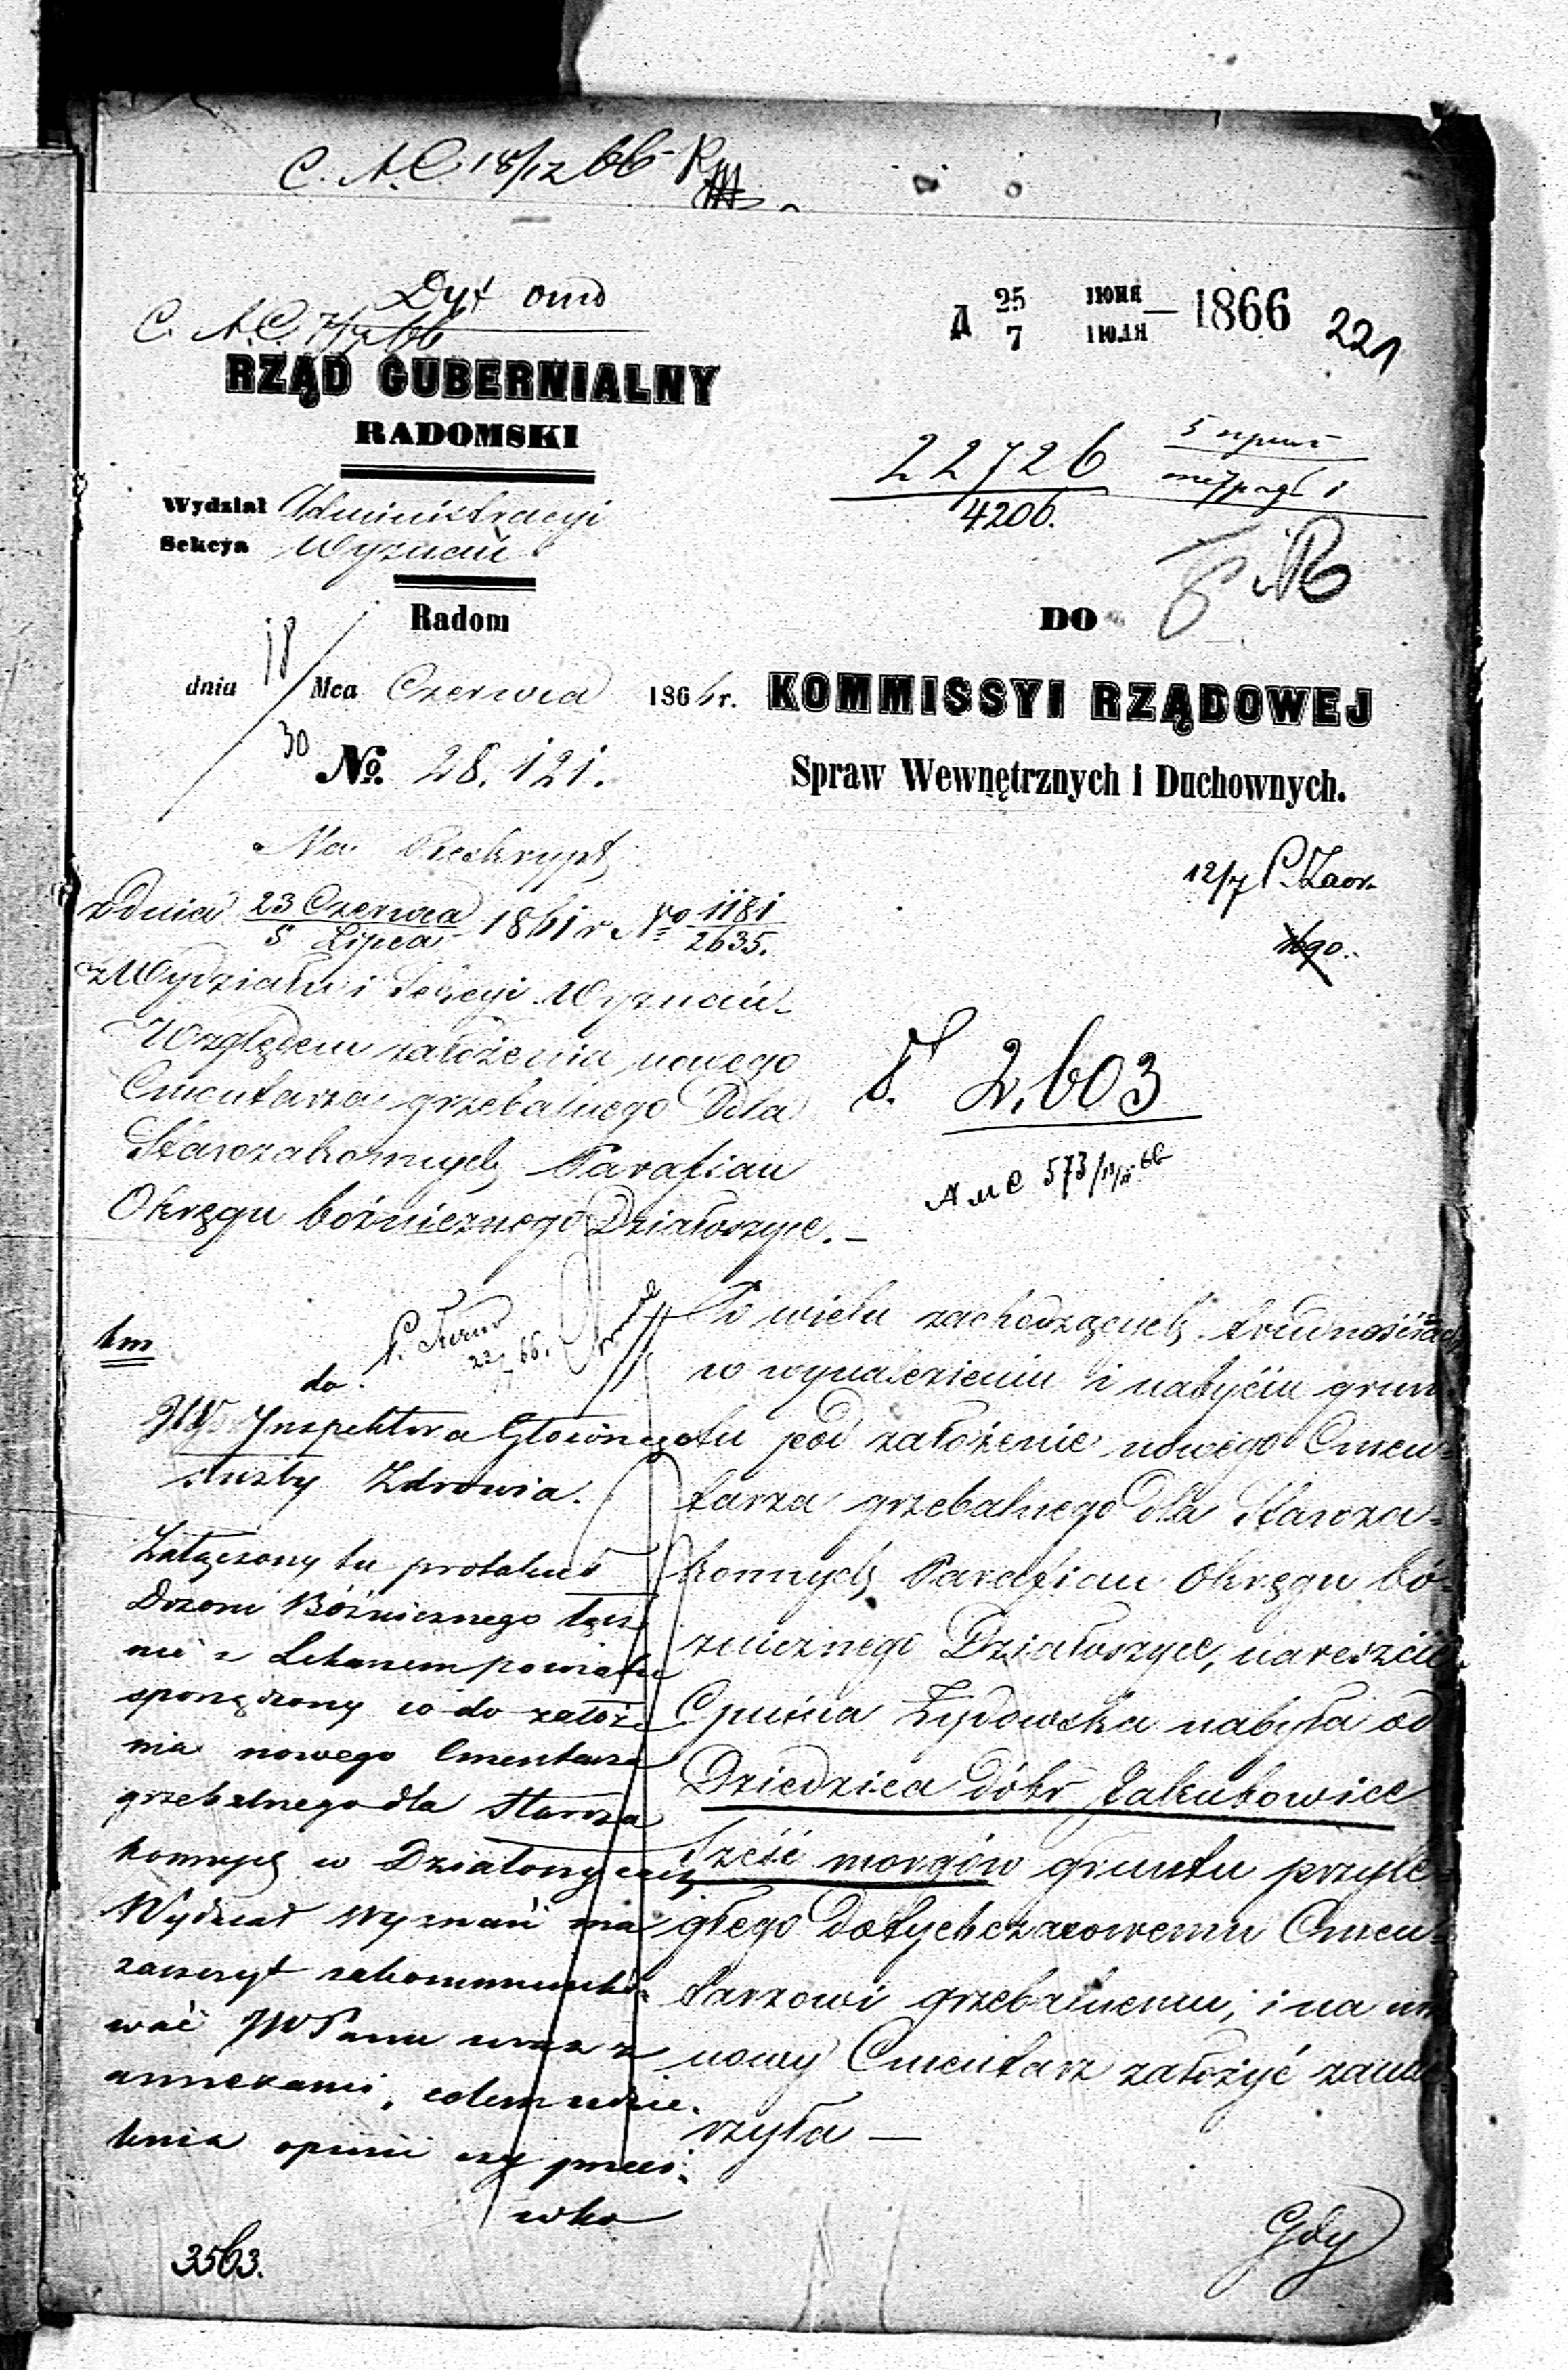 C. A. C. 18/12 66
Dyt omd
C. A. C. 7/7 66
Д 25 ІЮНЯ
7 ІЮЛЯ — 1866
221
RZĄD GUBERNIALNY
RADOMSKI
22726
4206.
Wydział Administracyi
Sekcya Wyznań
Radom
DO
dnia 18/30 Mca Czerwca 1866 r.
KOMMISSYI RZĄDOWEJ
No. 28.121.
Spraw Wewnętrznych i Duchownych.
Na Reskrypt
z dnia 23 Czerwca / 5 Lipca 1861 r No 1181 / 2635.
z Wydziału i Sekcyi Wyznań
Względem założenia nowego
Cmentarza grzebalnego dla
Starozakonnych Parafian
Okręgu bóżnicznego Działoszyce.—
12/7 P. Zaor.
2.603
573
km
22/7 66.
do
JW Inspektora Głównego
służby Zdrowia.
Załączony tu protokuł
Dozoru Bóżnicznego łącz
nie z Lekarzem powiatu
sporządzony co do założe
nia nowego Cmentarza
grzebalnego dla Staroza
konnych w Działoszycach
Wydział Wyznań ma
zaszczyt zakommuniko-
wać JWPanu wraz z
annexami, celem udzie-
lenia opinii czy przeci-
wko
3563.
Po wielu zachodzących trudnościach
w wynalezieniu i nabyciu grun
tu pod założenie nowego Cmen-
tarza grzebalnego dla Staroza-
konnych Parafian Okręgu bó-
żnicznego Działoszyce, nareszcie
Gmina Żydowska nabyła od
Dziedzica dóbr Jakubowice
sześć morgów gruntu przyle-
głego dotychczasowemu Cmen-
tarzowi grzebalnemu, i na nim
nowy Cmentarz założyć zamie-
rzyła —
Gdy